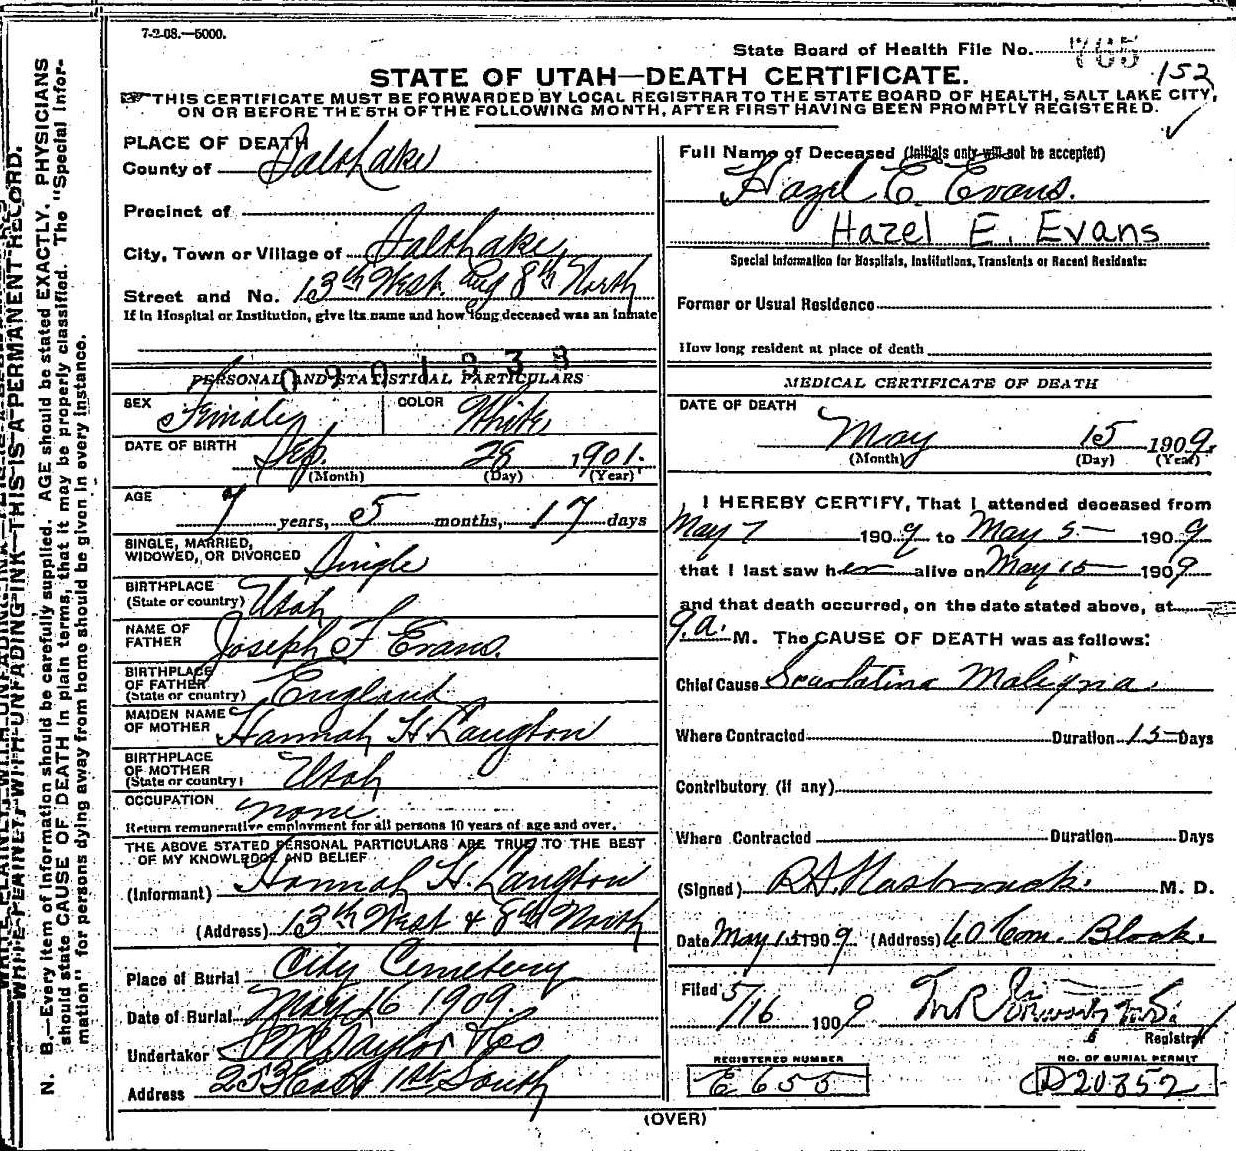 7-2-08.—5000.
State Board of Health File No. 705
152
STATE OF UTAH—DEATH CERTIFICATE.
THIS CERTIFICATE MUST BE FORWARDED BY LOCAL REGISTRAR TO THE STATE BOARD OF HEALTH, SALT LAKE CITY,
ON OR BEFORE THE 5TH OF THE FOLLOWING MONTH, AFTER FIRST HAVING BEEN PROMPTLY REGISTERED.
PLACE OF DEATH
County of Salt Lake
Precinct of
City, Town or Village of Salt Lake
Street and No. 13th West. 8th North
If in Hospital or Institution, give its name and how long deceased was an inmate
0901333
PERSONAL AND STATISTICAL PARTICULARS
SEX Female COLOR White
DATE OF BIRTH Sep. 28 1901.
(Month) (Day) (Year)
AGE
7 years, 5 months, 17 days
SINGLE, MARRIED,
WIDOWED, OR DIVORCED Single
BIRTHPLACE
(State or country) Utah
NAME OF
FATHER Joseph F Evans.
BIRTHPLACE
OF FATHER
(State or country) England
MAIDEN NAME
OF MOTHER Hannah H. Langton
BIRTHPLACE
OF MOTHER
(State or country) Utah
OCCUPATION none.
Return remunerative employment for all persons 10 years of age and over.
THE ABOVE STATED PERSONAL PARTICULARS ARE TRUE TO THE BEST
OF MY KNOWLEDGE AND BELIEF
(Informant) Hannah H. Langton
(Address) 13th West & 8th North
Place of Burial City Cemetery
Date of Burial May 16 1909.
Undertaker Taylor & Co
Address 253 East 1st South
Full Name of Deceased (Initials only will not be accepted)
Hazel E. Evans.
Hazel E. Evans
Special Information for Hospitals, Institutions, Transients or Recent Residents:
Former or Usual Residence
How long resident at place of death
MEDICAL CERTIFICATE OF DEATH
DATE OF DEATH
May 15 1909.
(Month) (Day) (Year)
I HEREBY CERTIFY, That I attended deceased from
May 7 1909 to May 5 1909
that I last saw her alive on May 15 1909
and that death occurred, on the date stated above, at
9.a. M. The CAUSE OF DEATH was as follows:
Chief Cause Scarlatina Maligna
Where Contracted Duration 15 Days
Contributory (if any)
Where Contracted Duration Days
(Signed) M. D.
Date May 15 1909. (Address) 60 Com. Block.
Filed 5/16 1909
Registrar
REGISTERED NUMBER
E 655
NO. OF BURIAL PERMIT
D20352
(OVER)
WRITE PLAINLY WITH UNFADING INK—THIS IS A PERMANENT RECORD.
N. B.—Every item of information should be carefully supplied. AGE should be stated EXACTLY. PHYSICIANS
should state CAUSE OF DEATH in plain terms, that it may be properly classified. The "Special Infor-
mation" for persons dying away from home should be given in every instance.